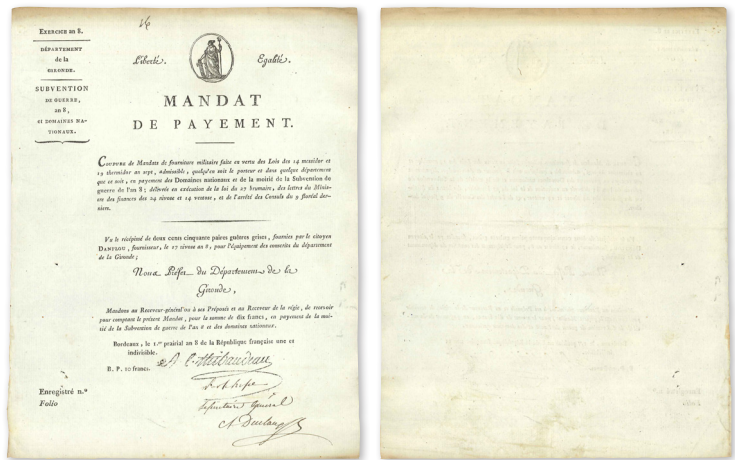 Exercice an 8.
DÉPARTEMENT
de la
GIRONDE.
SUBVENTION
DE GUERRE,
an 8;
et DOMAINES NA-
TIONAUX.
Liberté. Egalité.
MANDAT
DE PAYEMENT.
Coupure de Mandats de fourniture militaire faite en vertu des Lois des 14 messidor et
19 thermidor an sept, admissible, quelqu'en soit le porteur et dans quelque département
que ce soit, en payement des Domaines nationaux et de la moitié de la Subvention de
guerre de l'an 8; délivrée en exécution de la loi du 27 brumaire, des lettres du Minis-
tre des finances des 24 nivose et 14 ventose, et de l'arrêté des Consuls du 9 floréal der-
niere.
Vu le récipicé de deux cents cinquante paires guêtres grises, fournies par le citoyen
Danflou, fournisseur, le 17 nivose an 8, pour l'équipement des conscrits du département
de la Gironde;
Nous Préfet du Département de la
Gironde,
Mandons au Receveur-général ou à ses Préposés et au Receveur de la régie, de recevoir
pour comptant le présent Mandat, pour la somme de dix francs, en payement de la moi-
tié de la Subvention de guerre de l'an 8 et des domaines nationaux.
Bordeaux, le 1.er prairial an 8 de la République française une et
indivisible.
B. P. 10 francs.
Enregistré n.º
Folio
Secrétaire Général